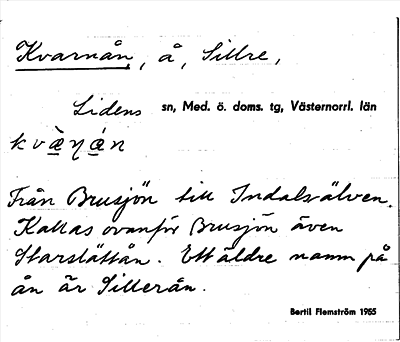 Kvarnån, å, Sillre,
Lidens sn, Med. ö. doms. tg, Västernorrl. län
kvæ̀ɳǽn
Från Brusjön till Indalsälven.
Kallas ovanför Brusjön även
Starslåttån. Ett äldre namn på
ån är Sillerån.
Bertil Flemström 1965